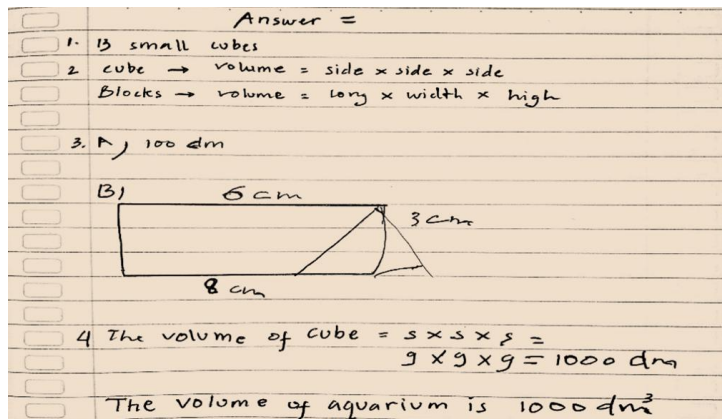 Answer =
1. 13 small cubes
2 cube → volume = side x side x side
Blocks → volume = long x width x high
3. A) 100 dm
B)
6 cm
3 cm
8 cm
4 The volume of cube = s x s x s =
9 x 9 x 9 = 1000 dm
The volume of aquarium is 1000 dm³